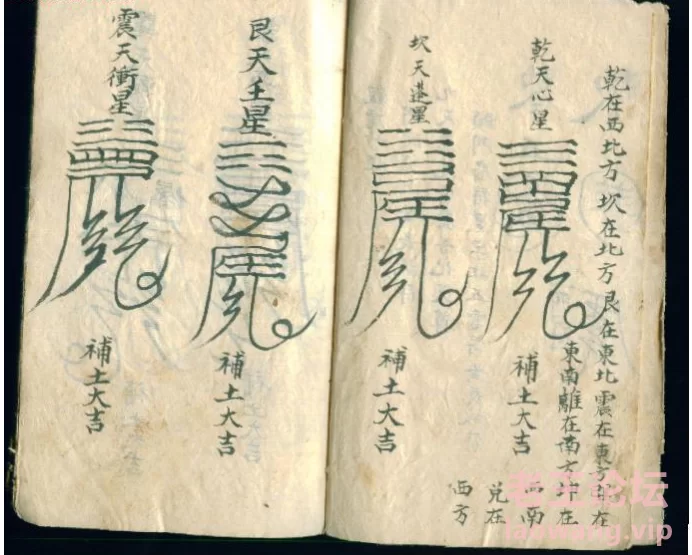 乾在西北方坎在北方艮在東北震在東方巽在
東南離在南方坤在
西南
兑在
西方
乾天心星
補土大吉
坎天蓬星
補土大吉
艮天壬星
補土大吉
震天衝星
補土大吉
老王论坛
laowang.vip